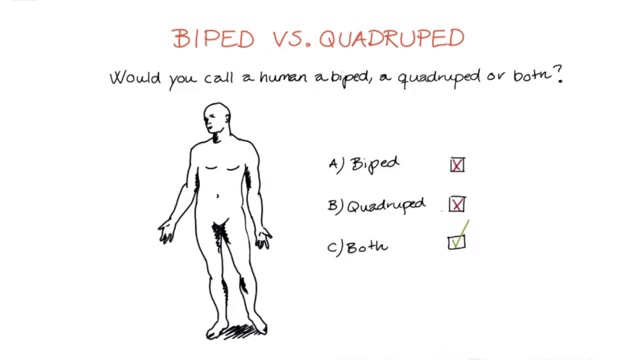 BIPED VS. QUADRUPED
Would you call a human a biped, a quadruped or both?
A) Biped
B) Quadruped
C) Both